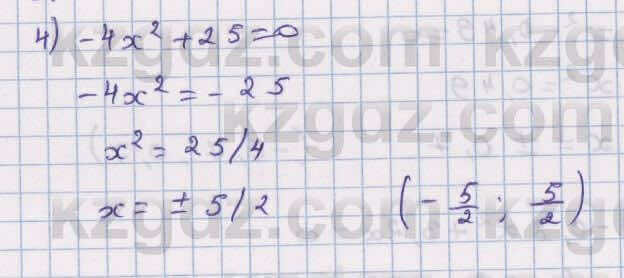 4) -4x² + 25 = 0
-4x² = - 25
x² = 25/4
x = ± 5/2 (- 5/2 ; 5/2)
kzgdz.com
kzgdz.com
kzgdz.com